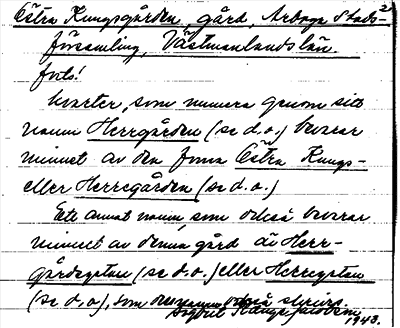 Östra Kungsgården, gård, Arboga Stads-2
församling, Västmanlands län.
forts!
kvarter, som numera genom sitt
namn Herrgården (se d.o.) bevarar
minnet av den forna Östra Kungs-
eller Herregården (se d.o.)
Ett annat namn, som också bevarar
minnet av denna gård är Herr-
gårdsgatan (se d.o.) eller Herregatan
(se d.o), som den också skrives.
1943.